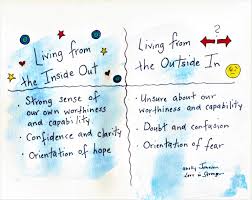 Living from
the Inside Out
• Strong sense of
our own worthiness
and capability
• Confidence and clarity
• Orientation of hope
?
Living from
the Outside In
• Unsure about our
worthiness and capability
• Doubt and confusion
• Orientation of fear